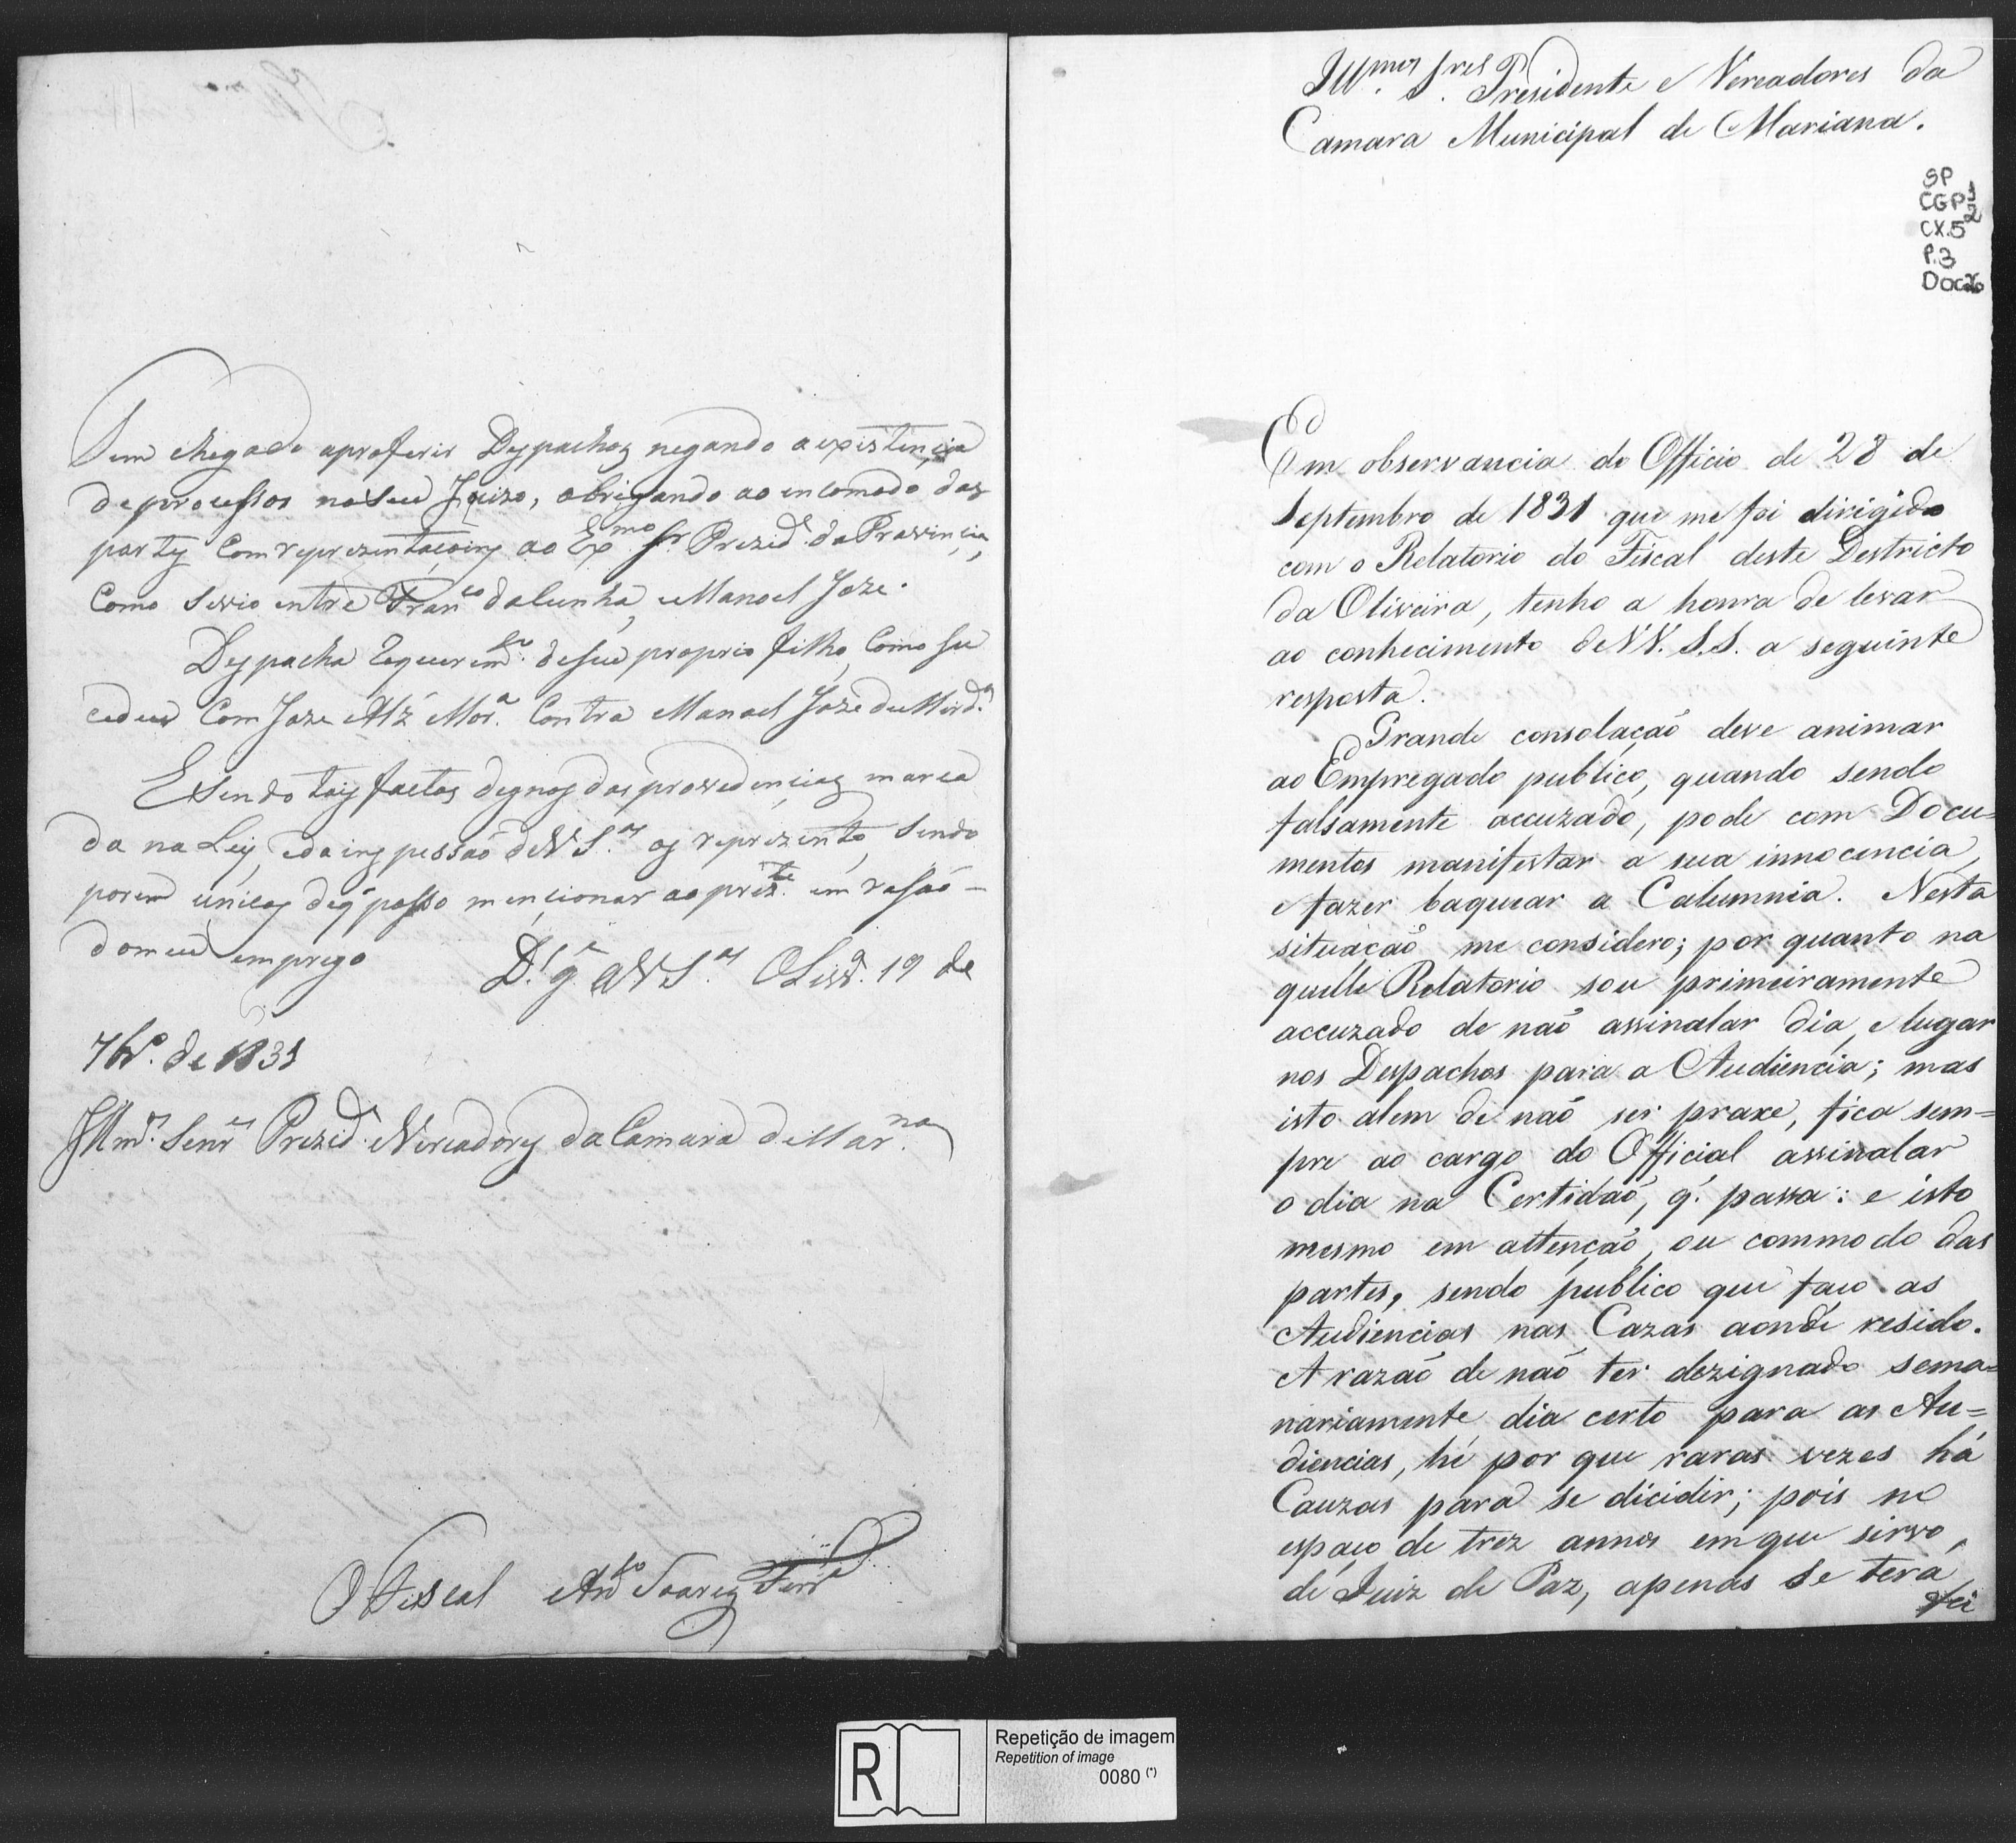 Tem chegado aproferir Dyspachos negando aexistencia
deprocessos noseu Juizo, obrigando ao encomodo das
partes Com reprezentaçoins ao Exmo Sr. Prezide. da Provincia,
Como sevio entre Franco daCunha, eManoel Joze.
Despacha Requerimto. deseu proprio filho, Como su
cedeu Com Joze Alz' Mora. Contra Manoel Joze deMirda.
ESendo tais factos dignos das provedencias marca
da na Ley, eda inspessaõ deVSas. os reprezento, Sendo
porem unicos deq' posso mencionar ao prezte. em rasaõ
domeu emprego
De. ge. aVSas. Olivra. 19 de
7bro. de 1831
Illmos. Senres Prezide. eVereadores da Camara deMarna.
O Fiscal Anto Soares Ferra
Illmos. Sres. Presidente e Vereadores da
Camara Municipal de Mariana.
SP
CGP 1/2
CX.5
P.3
Doc
Em observancia do Officio de 28 de
Septembro de 1831 que me foi dirigido
com o Relatorio do Fiscal deste Destricto
da Oliveira, tenho a honra de levar
ao conhecimento de VV. S.S. a seguinte
resposta.
Grande consolaçaõ deve animar
ao Empregado publico, quando sendo
falsamente accuzado, pode com Docu=
mentos manifestar a sua innocencia,
e fazer baquear a Calumnia. Nesta
situaçaõ me considero; por quanto na
quelle Relatorio sou primeiramente
accuzado de naõ assinalar dia, e lugar
nos Despachos para a Audiencia; mas
isto alem de naõ ser praxe, fica sem=
pre ao cargo do Official assinalar
o dia na Certidaõ, q'. passa: e isto
mesmo em attençaõ, ou commodo das
partes, sendo publico que faço as
Audiencias nas Cazas aonde resido.
A razaõ de naõ ter dezignado sema=
nariamente dia certo para as Au=
diencias, hé por que raras vezes há
Cauzas para se dicidir; pois no
espaço de trez annos em que sirvo,
de Juiz de Paz, apenas se terá
fei
R
Repetição de imagem
Repetition of image
0080 (*)